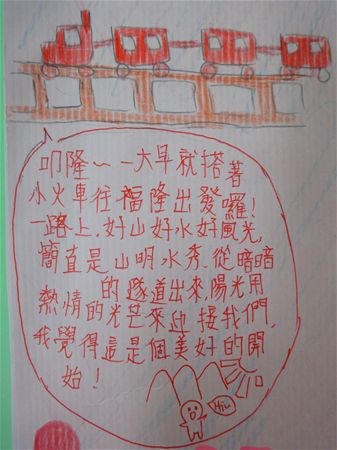 叩隆～一大早就搭著
小火車往福隆出發囉!
一路上,好山好水好風光,
簡直是山明水秀,從暗暗
的隧道出來,陽光用
熱情的光芒來迎接我們,
我覺得這是個美好的開
始!
Hi~